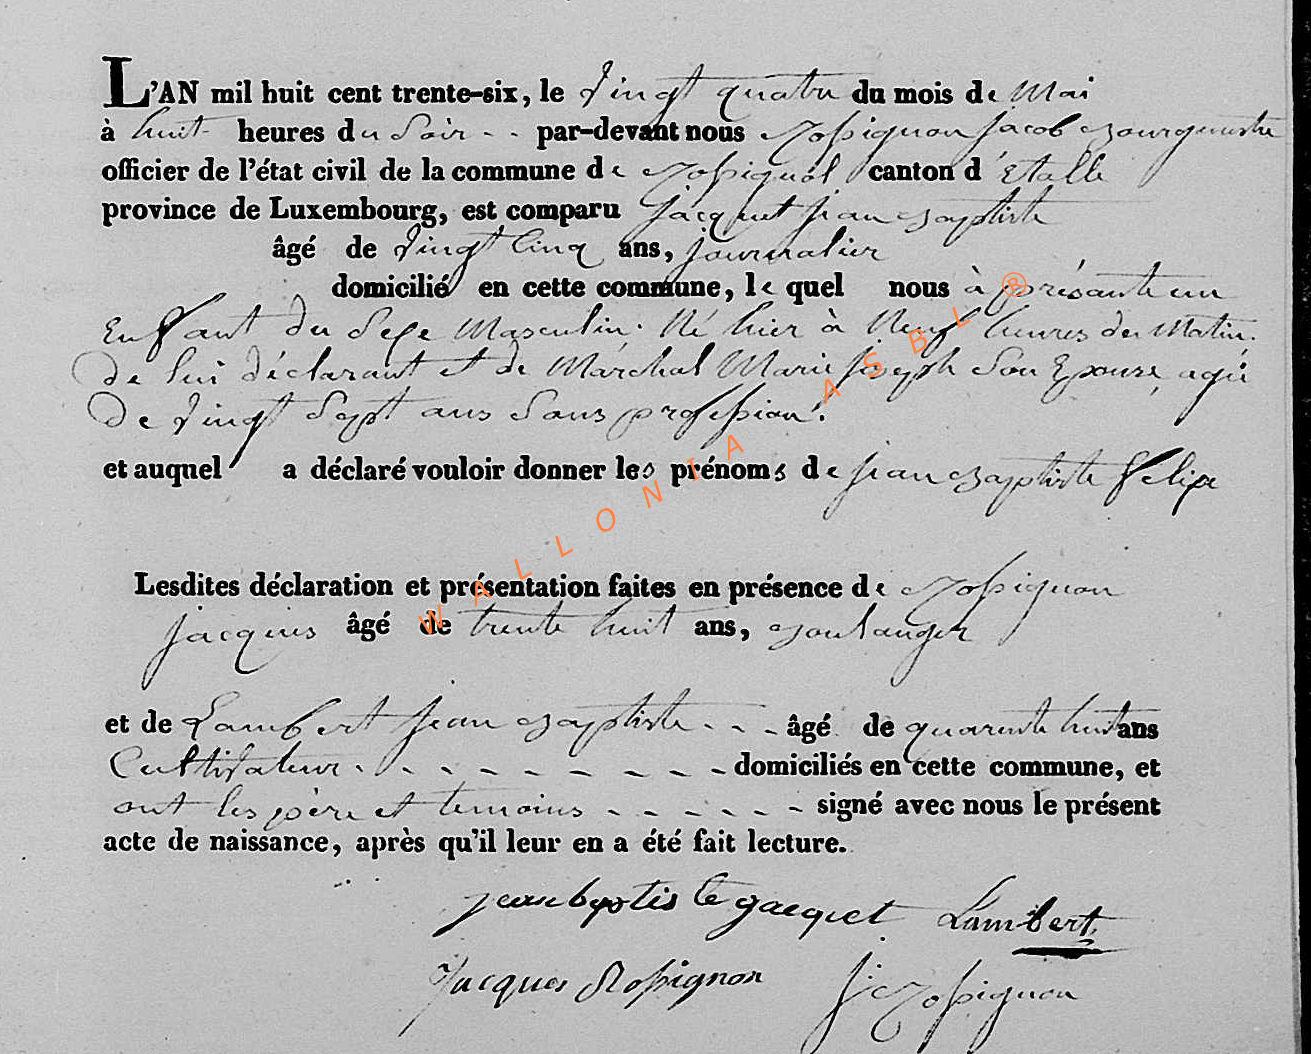 L'AN mil huit cent trente-six, le vingt quatre du mois de Mai
à huit heures du Soir - - par-devant nous Rossignon Jacob Bourguestre
officier de l'état civil de la commune de Rossignol canton d'Etalle
province de Luxembourg, est comparu Jacquet Jean Baptiste
âgé de vingt Cinq ans, journalier
domicilié en cette commune, le quel nous à présanté un
Enfant du Sexe Masculin. Né hier à Neuf heures du Matin.
de lui déclarant et de Maréchal Marie Joseph Son Epouse, agée
De vingt Sept ans Sans profession.
et auquel a déclaré vouloir donner les prénoms de Jean Baptiste Felix
Lesdites déclaration et présentation faites en présence de Rossignon
Jacques âgé de trente huit ans, Boulanger
et de Lambert Jean Baptiste - - - âgé de quarente huit ans
Cultivateur - - - - - - - - - domiciliés en cette commune, et
ont les père et temoins - - - - - signé avec nous le présent
acte de naissance, après qu'il leur en a été fait lecture.
jean baptis te jacquet Lambert
Jacques Rossignon J: Rossignon
WALLONIA ASBL ®